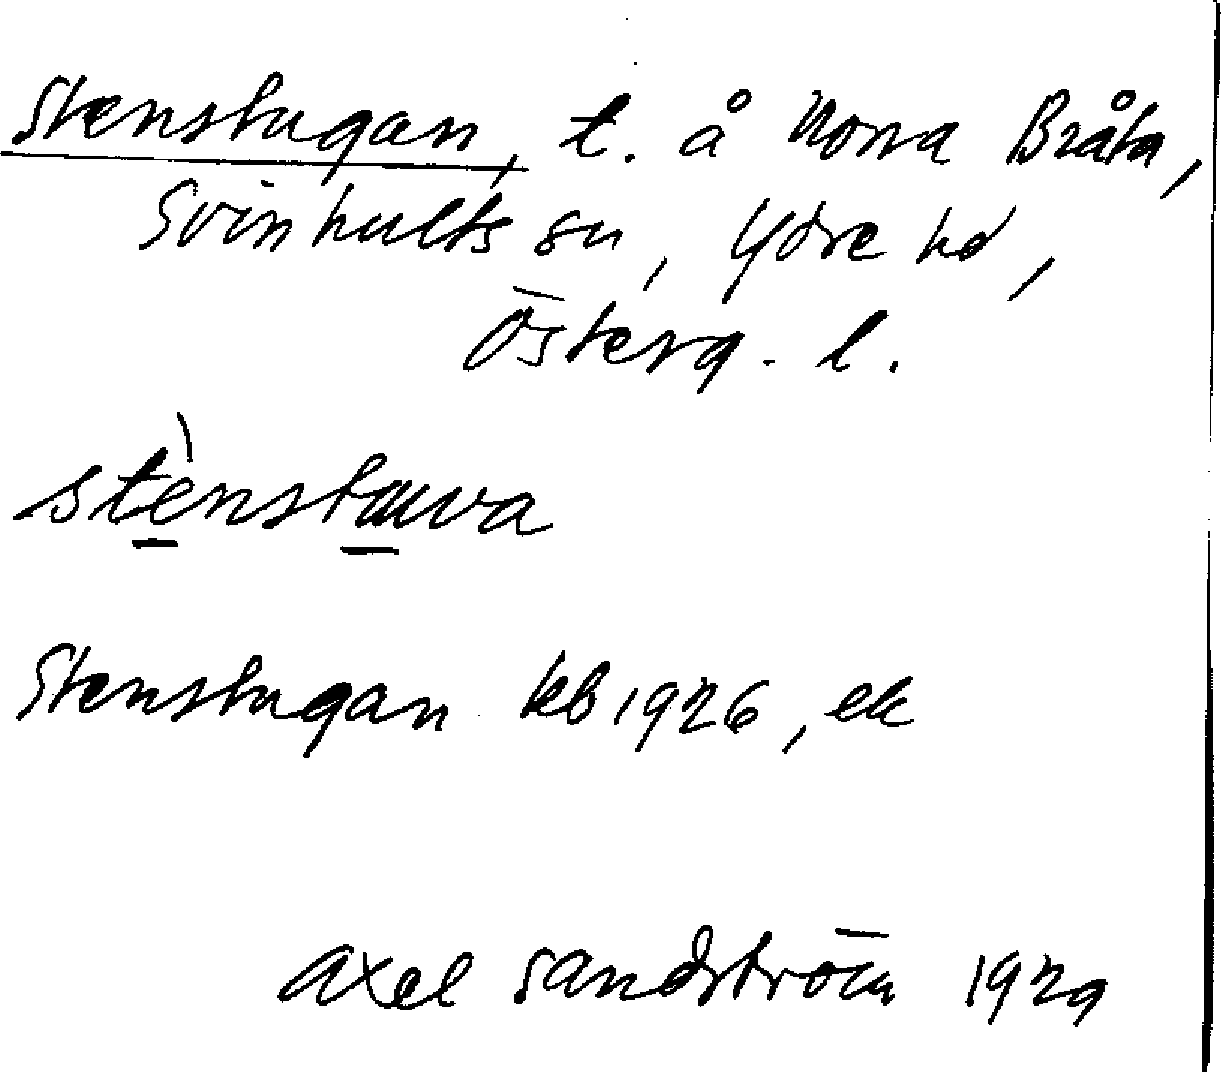 Stenstugan, t. å Norra Bråta,
Svinhults sn, Ydre hd,
Österg. l.
stènstuva
Stenstugan kb 1926, ek
Axel Sandström 1929